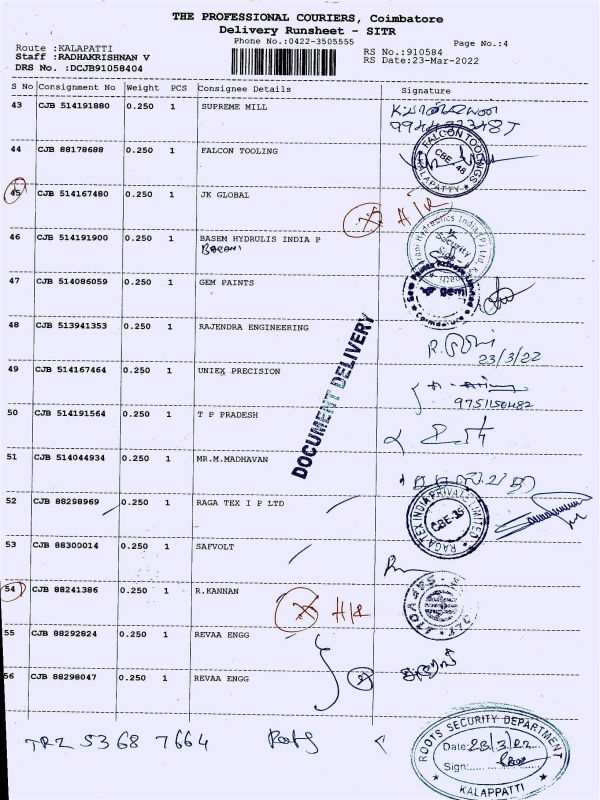 THE PROFESSIONAL COURIERS, Coimbatore
Delivery Runsheet - SITR
Phone No.:0422-3505555
Page No.:4
Route :KALAPATTI
RS No.:910584
Staff :RADHAKRISHNAN V
RS Date:23-Mar-2022
DRS No. :DCJB91058404
S No Consignment No Weight PCS Consignee Details Signature
43 CJB 514191880 0.250 1 SUPREME MILL
44 CJB 88178688 0.250 1 FALCON TOOLING
FALCON TOOLINGS
CBE-48
KALAPATTY
45 CJB 514167480 0.250 1 JK GLOBAL
H/R
46 CJB 514191900 0.250 1 BASEM HYDRULIS INDIA P
BARANI
Security
47 CJB 514086059 0.250 1 GEM PAINTS
gem
48 CJB 513941353 0.250 1 RAJENDRA ENGINEERING
23/3/22
DOCUMENT DELIVERY
49 CJB 514167464 0.250 1 UNIEX PRECISION
9751150482
50 CJB 514191564 0.250 1 T P PRADESH
51 CJB 514044934 0.250 1 MR.M.MADHAVAN
52 CJB 88298969 0.250 1 RAGA TEX I P LTD
RAGATEX INDIA PRIVATE LIMITED
CBE-35
53 CJB 88300014 0.250 1 SAFVOLT
54 CJB 88241386 0.250 1 R.KANNAN
H/R
55 CJB 88292824 0.250 1 REVAA ENGG
56 CJB 88298047 0.250 1 REVAA ENGG
TRZ 5368 7664 Roots
ROOTS SECURITY DEPARTMENT
Date:23/3/22
Sign:
KALAPPATTI